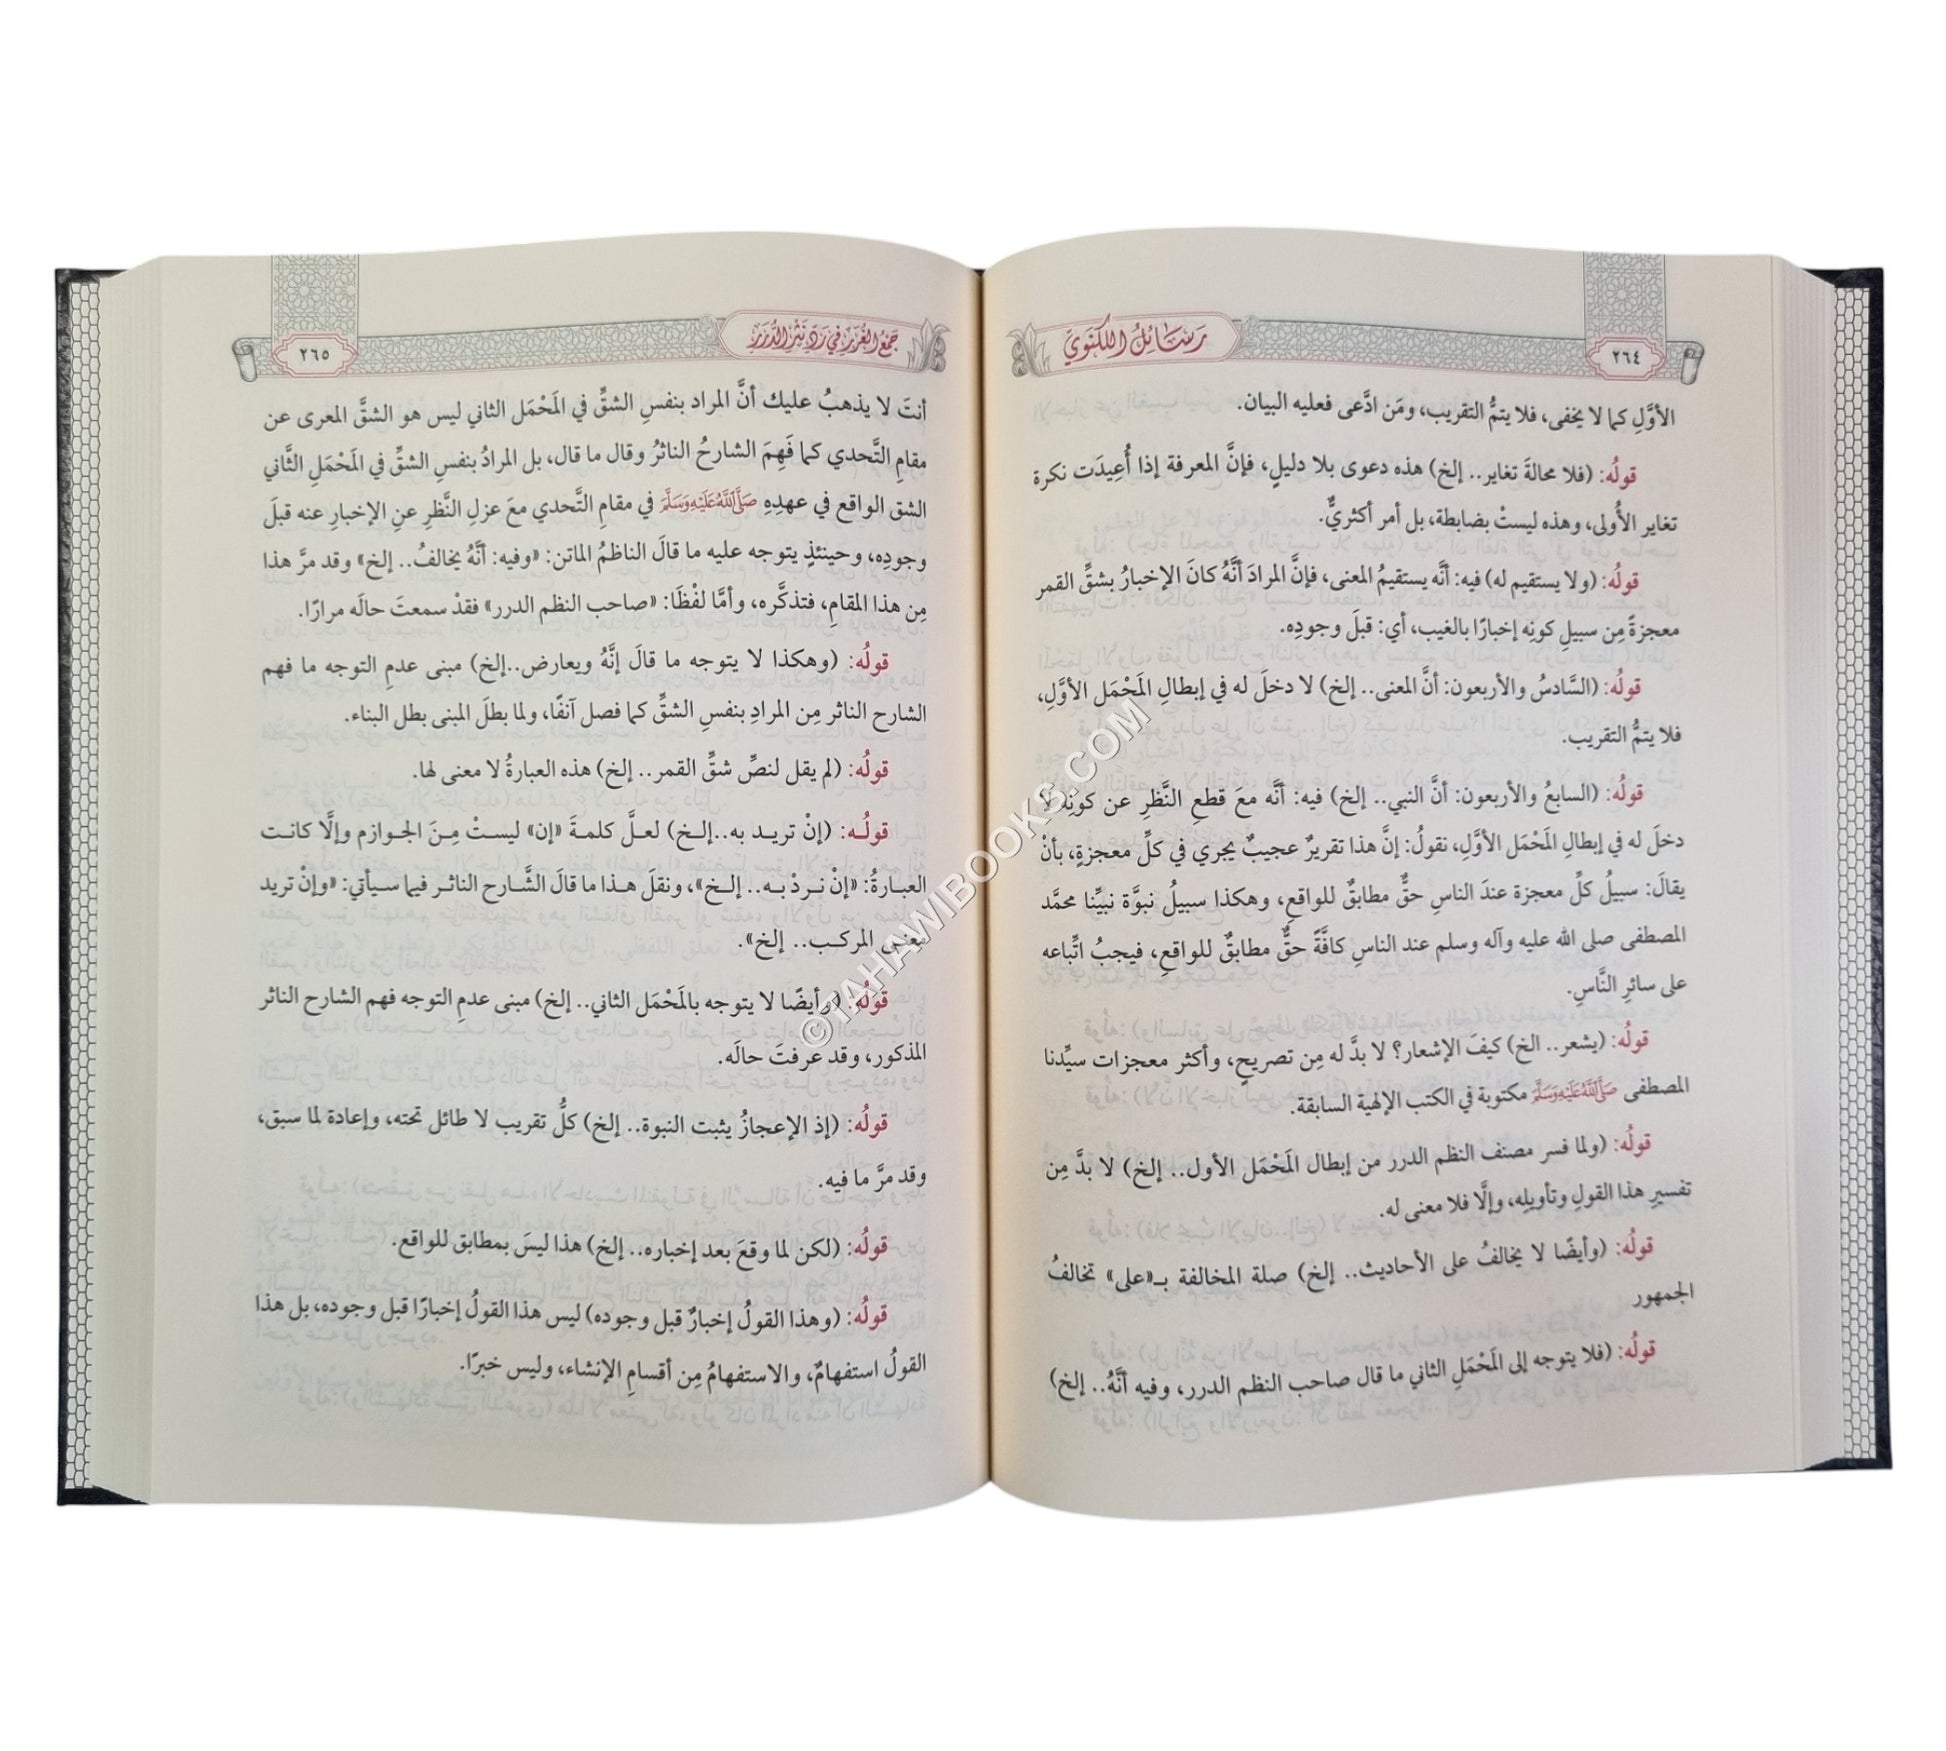 ٢٦٤
رسائل اللكنوي
الأوَّلِ كما لا يخفى، فلا يتمُّ التقريب، ومَن ادَّعى فعليه البيان.
قولُه: (فلا محالةَ تغاير.. إلخ) هذه دعوى بلا دليلٍ، فإنَّ المعرفة إذا أُعِيدَت نكرة
تغاير الأُولى، وهذه ليستْ بضابطة، بل أمر أكثريٌّ.
قولُه: (ولا يستقيم له) فيه: أنَّه يستقيمُ المعنى، فإنَّ المرادَ أنَّهُ كانَ الإخبارُ بشقِّ القمر
معجزةً مِن سبيلِ كونِه إخبارًا بالغيب، أي: قبلَ وجودِه.
قولُه: (السَّادسُ والأربعون: أنَّ المعنى.. إلخ) لا دخلَ له في إبطالِ المَحْمَل الأوَّلِ،
فلا يتمُّ التقريب.
قولُه: (السابعُ والأربعون: أنَّ النبي.. إلخ) فيه: أنَّه معَ قطعِ النَّظرِ عن كونِه لا
دخلَ له في إبطالِ المَحْمل الأوَّلِ، نقولُ: إنَّ هذا تقريرٌ عجيبٌ يجري في كلِّ معجزةٍ، بأنْ
يقالَ: سبيلُ كلِّ معجزة عندَ الناسِ حقٌّ مطابقٌ للواقعِ، وهكذا سبيلُ نبوَّة نبيِّنا محمَّد
المصطفى صلى الله عليه وآله وسلم عند الناسِ كافَّةً حقٌّ مطابقٌ للواقعِ، فيجبُ اتِّباعه
على سائرِ النَّاسِ.
قولُه: (يشعر.. الخ) كيفَ الإشعار؟ لا بدَّ له مِن تصريحٍ، وأكثر معجزات سيِّدنا
المصطفى صَلَّى اللَّهُ عَلَيْهِ وَسَلَّمَ مكتوبة في الكتب الإلهية السابقة.
قولُه: (ولما فسر مصنف النظم الدرر من إبطال المَحْمَل الأول.. إلخ) لا بدَّ مِن
تفسيرِ هذا القولِ وتأويلِه، وإلَّا فلا معنى له.
قولُه: (وأيضًا لا يخالفُ على الأحاديث.. إلخ) صلة المخالفة بـ«على» تخالفُ
الجمهور
قولُه: (فلا يتوجه إلى المَحْمَلِ الثاني ما قال صاحب النظم الدرر، وفيه أنَّهُ.. إلخ)
جمع الغرر في رد نثر الدرر
٢٦٥
أنتَ لا يذهبُ عليك أنَّ المراد بنفسِ الشقِّ في المَحْمَل الثاني ليس هو الشقَّ المعرى عن
مقامِ التَّحدي كما فَهِمَ الشارحُ الناثرُ وقال ما قال، بل المرادُ بنفسِ الشقِّ في المَحْمَلِ الثَّاني
الشق الواقع في عهدِهِ صَلَّى اللَّهُ عَلَيْهِ وَسَلَّمَ في مقام التَّحدي معَ عزلِ النَّظرِ عنِ الإخبارِ عنه قبلَ
وجودِه، وحينئذٍ يتوجه عليه ما قالَ الناظمُ الماتن: «وفيه: أنَّهُ يخالفُ.. إلخ» وقد مرَّ هذا
مِن هذا المقامِ، فتذكَّره، وأمَّا لفْظَا: «صاحب النظم الدرر» فقدْ سمعتَ حالَه مرارًا.
قولُه: (وهكذا لا يتوجه ما قالَ إنَّهُ ويعارض..إلخ) مبنى عدمِ التوجه ما فهم
الشارح الناثر مِن المرادِ بنفسِ الشقِّ كما فصل آنفًا، ولما بطلَ المبنى بطل البناء.
قولُه: (لم يقل لنصِّ شقِّ القمر.. إلخ) هذه العبارةُ لا معنى لها.
قولُـه: (إنْ تريـد به..إلـخ) لعـلَّ كلمـةَ «إن» ليسـتْ مِـنَ الجـوازم وإلَّا كانـت
العبـارةُ: «إنْ نـردْ بـه.. إلـخ»، ونقلَ هـذا ما قالَ الشَّـارح الناثـر فيما سـيأتي: «وإنْ تريد
معنـى المركـب.. إلخ».
قولُه: (وأيضًا لا يتوجه بالمَحْمَل الثاني.. إلخ) مبنى عدمِ التوجه فهم الشارح الناثر
المذكور، وقد عرفتَ حالَه.
قولُه: (إذ الإعجازُ يثبت النبوة.. إلخ) كلُّ تقريب لا طائل تحته، وإعادة لما سبق،
وقد مرَّ ما فيه.
قولُه: (لكن لما وقعَ بعد إخباره.. إلخ) هذا ليسَ بمطابق للواقع.
قولُه: (وهذا القولُ إخبارٌ قبل وجوده) ليس هذا القولُ إخبارًا قبل وجوده، بل هذا
القولُ استفهامٌ، والاستفهامُ مِن أقسامِ الإنشاء، وليس خبرًا.
©TAHAWIBOOKS.COM